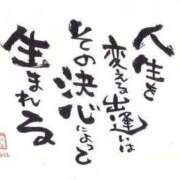 人生を
変える出逢いは
その決心によって
生まれる